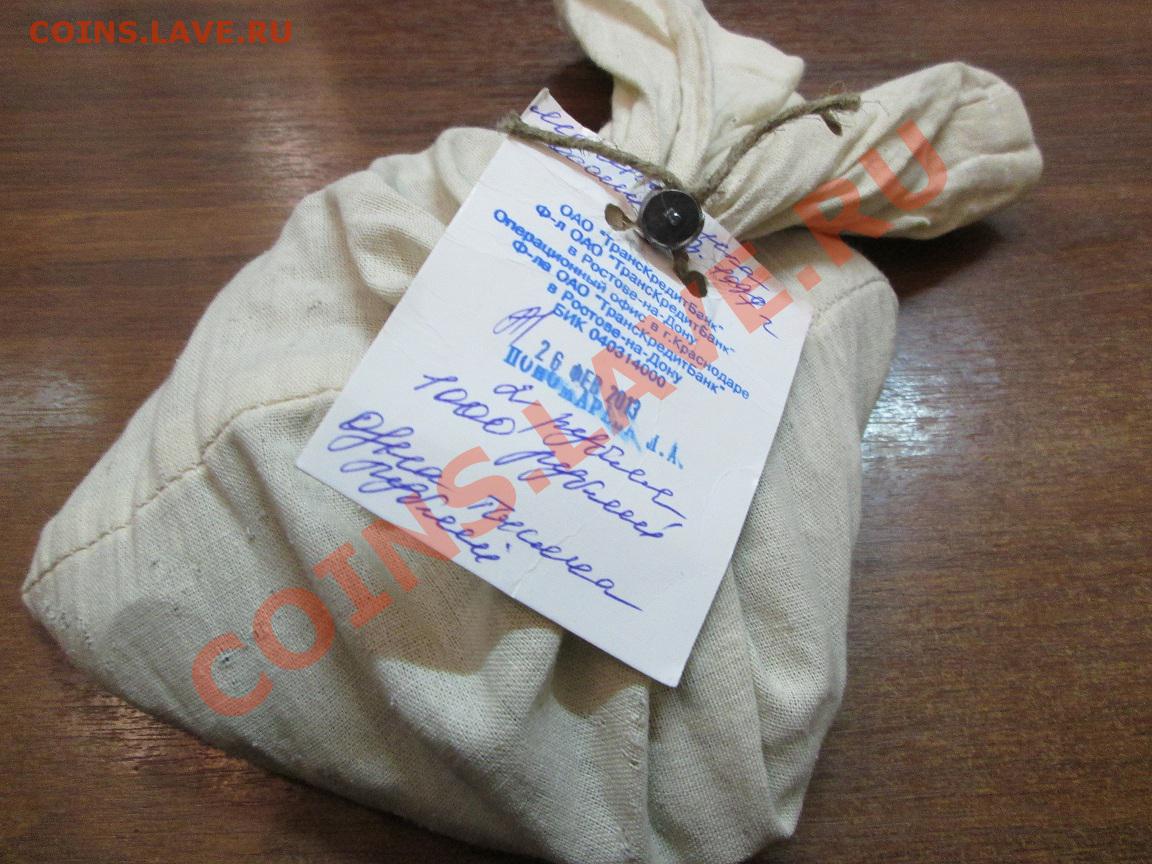 COINS.LAVE.RU
1997 г
ОАО "ТрансКредитБанк"
Ф-л ОАО "ТрансКредитБанк"
в Ростове-на-Дону
Операционный офис в г.Краснодаре
Ф-ла ОАО "ТрансКредитБанк"
в Ростове-на-Дону
БИК 040314000
26 ФЕВ 2013
Л.А.
2 рубля
1000 рублей
Одна тысяча
рублей
COINS.LAVE.RU